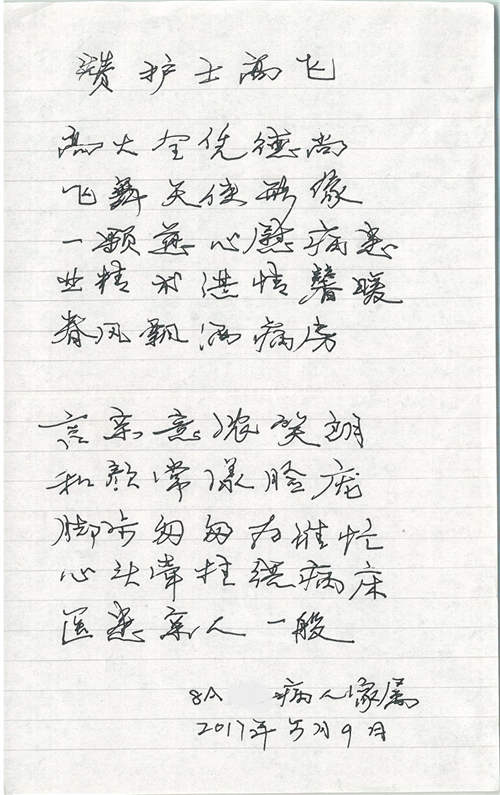 赞护士高飞
高大全凭德尚
飞舞天使形像
一颗慈心慰病患
业精术湛情馨暖
春风飘洒病房
言亲意浓笑朗
和颜常漾脸庞
脚步匆匆为谁忙
心头牵挂绕病床
医患亲人一般
8A 病人家属
2017年5月9日